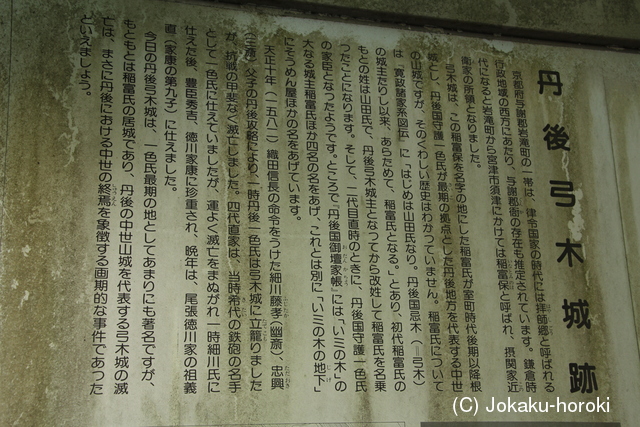 丹後弓木城跡
京都府与謝郡岩滝町の一帯は、律令国家の時代には拝師郷と呼ばれる
行政地域の西方にあたり、与謝郡衙の存在も推定されています。鎌倉時
代になると岩滝町から宮津市須津にかけては稲富保と呼ばれ、摂関家近
衛家の所領となりました。
弓木城は、この稲富保を名字の地にした稲富氏が室町時代後期以降根
城とし、丹後国守護一色氏が最期の拠点とした丹後地方を代表する中世
の山城ですが、そのくわしい歴史はわかっていません。稲富氏について
は「寛政諸家系図伝」に「はじめは山田氏なり。丹後国忌木（＝弓木）
の城主たりし以来、あらためて、稲富氏となる。」とあり、初代稲富氏の
もとの姓は山田氏で、丹後弓木城主となってから改姓して稲富氏を名乗
ったことになります。そして、二代目直時のときに、丹後国守護一色氏
の家臣となったようです。ところで「丹後国御壇家帳」には「いミの木」の
大なる城主稲富氏ほか四名の名をあげ、これとは別に「いミの木の地下」
にそうめん屋ほかの名をあげています。
天正十年（一五八二）織田信長の命令をうけた細川藤孝（幽斎）、忠興
（三斎）父子の丹後攻略により、一時丹後一色氏は弓木城に立籠りました
が、抗戦の甲斐なく滅亡しました。四代直家は、当時希代の鉄砲の名手
として一色氏に仕えていましたが、運よく滅亡をまぬがれ一時細川氏に
仕えた後、豊臣秀吉、徳川家康に珍重され、晩年は、尾張徳川家の祖義
直（家康の第九子）に仕えました。
今日の丹後弓木城は、一色氏最期の地としてあまりにも著名ですが、
もともとは稲富氏の居城であり、丹後の中世山城を代表する弓木城の滅
亡は、まさに丹後における中世の終焉を象徴する画期的な事件であった
といえましょう。
(C) Jokaku-horoki